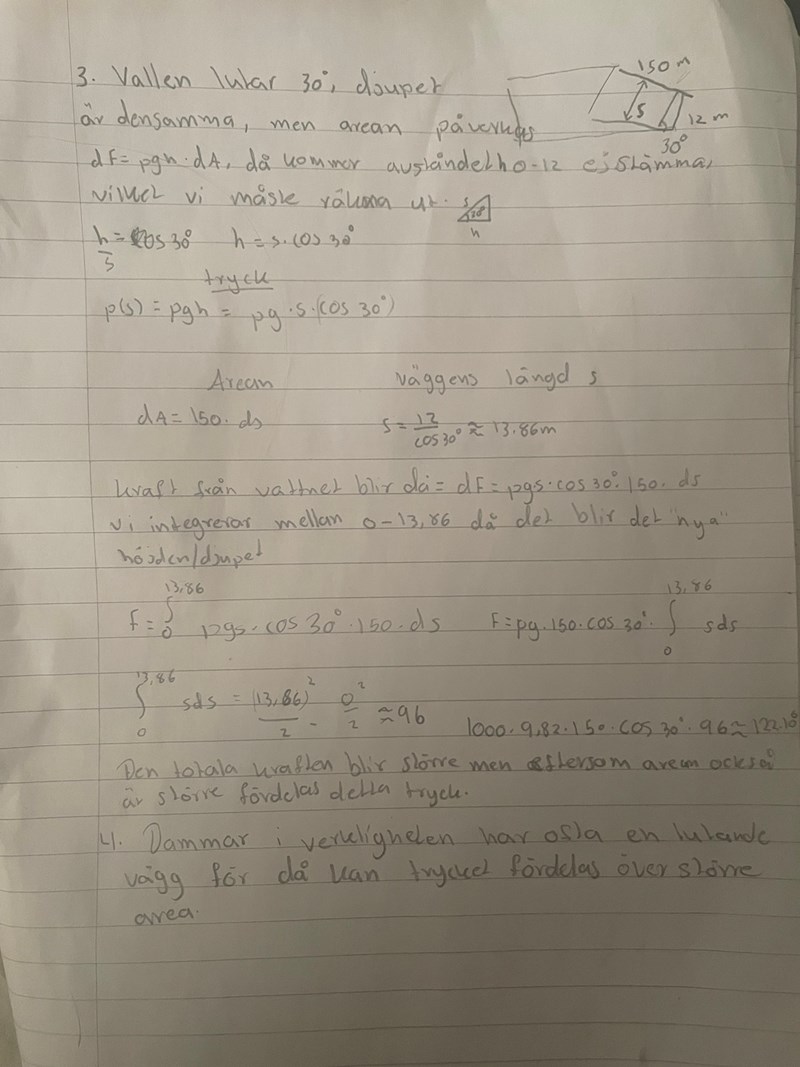 3. Vallen lutar 30°, djupet
150 m
är densamma, men arean påverkas
s
12 m
30°
dF = ρgh · dA, då kommer avståndet h 0-12 ej stämma,
vilket vi måste räkna ut.
s
30°
h
h/s = cos 30° h = s. cos 30°
tryck
p(s) = ρgh = ρg · s · (cos 30°)
Arean
väggens längd s
dA = 150. ds
s = 12/cos 30° ≈ 13.86m
kraft från vattnet blir då = dF = ρgs · cos 30° · 150. ds
vi integrerar mellan 0-13,86 då det blir det "nya"
höjden/djupet
F = ∫₀^13,86 ρgs · cos 30° · 150 · ds
F = ρg. 150. cos 30° · ∫₀^13,86 sds
∫₀^13,86 sds = (13,86)²/2 - 0²/2 ≈ 96
1000 · 9,82 · 150 · cos 30° · 96 ≈ 122.10⁶
Den totala kraften blir större men eftersom arean också
är större fördelas detta tryck.
4. Dammar i verkligheten har ofta en lutande
vägg för då kan trycket fördelas över större
area.